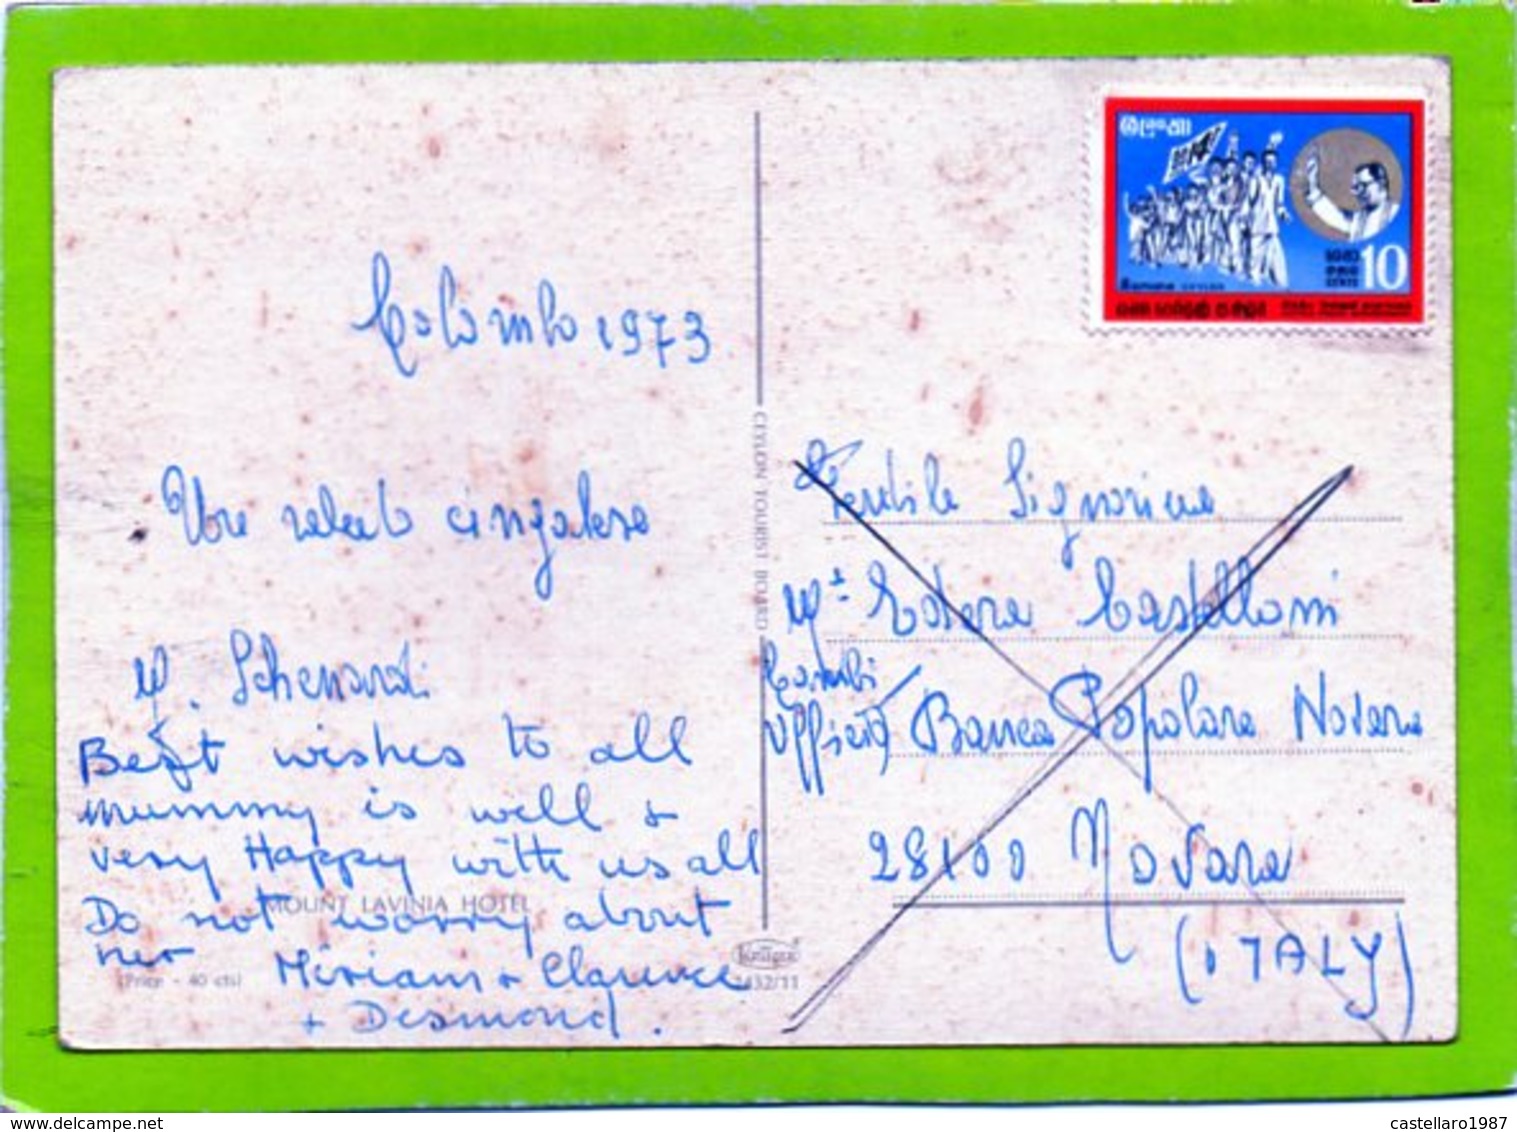 Colombo 1973
Un saluto cingalese
M. Schenardi
Best wishes to all
mummy is well &
very Happy with us all
Do not worry about
her Miriam & Clarence
& Desmond.
MOUNT LAVINIA HOTEL
(Price - 40 cts)
CEYLON TOURIST BOARD
Krüger
1432/11
CEYLON
10
CENTS
Gentile Signorina
Castellani
Cambi
Banca Popolare Novara
28100 Novara
(ITALY)
castellaro1987